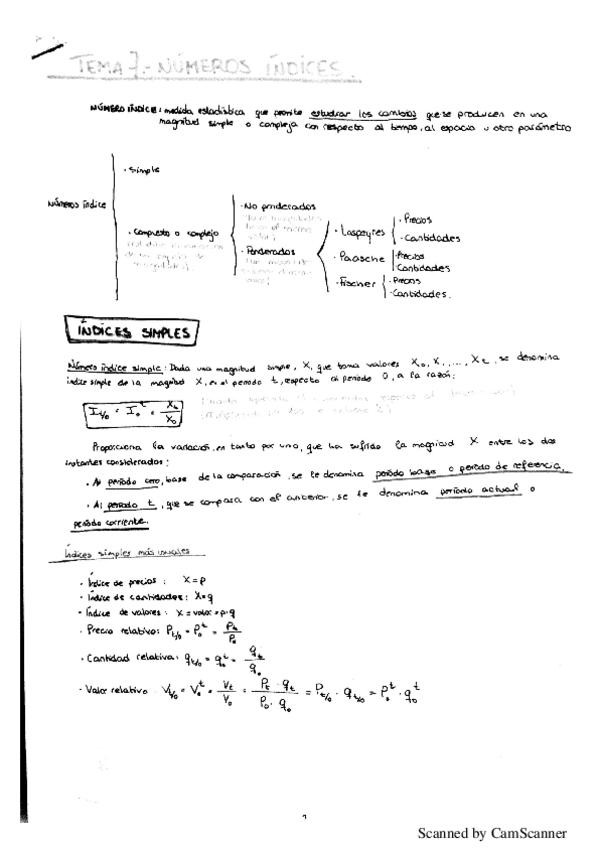 TEMA 7.- NÚMEROS ÍNDICES.
NÚMERO ÍNDICE: medida estadística que permite estudiar los cambios que se producen en una
magnitud simple o compleja con respecto al tiempo, al espacio u otro parámetro
Números índice
· Simple
· Compuesto o complejo
· No ponderados
· Ponderados
· Laspeyres
· Precios
· Cantidades
· Paasche
· Precios
Cantidades
· Fischer
· Precios
· Cantidades.
ÍNDICES SIMPLES
Número índice simple: Dada una magnitud simple, X, que toma valores X₀, X₁, ..., Xt, se denomina
índice simple de la magnitud X, en el periodo t, respecto al periodo 0, a la razón:
I t/0 = I₀ᵗ = Xt / X₀
Proporciona la variación, en tanto por uno, que ha sufrido la magnitud X entre los dos
instantes considerados:
· Al periodo cero, base de la comparación, se le denomina periodo base o periodo de referencia.
· Al periodo t, que se compara con el anterior, se le denomina periodo actual o
periodo corriente.
Índices simples más usuales
· Índice de precios: X = p
· Índice de cantidades: X = q
· Índice de valores: X = valor = p·q
· Precio relativo: P t/0 = P₀ᵗ = Pt / P₀
· Cantidad relativa: q t/0 = q₀ᵗ = qt / q₀
· Valor relativo: V t/0 = V₀ᵗ = Vt / V₀ = Pt · qt / P₀ · q₀ = P t/0 · q t/0 = P₀ᵗ · q₀ᵗ
Scanned by CamScanner